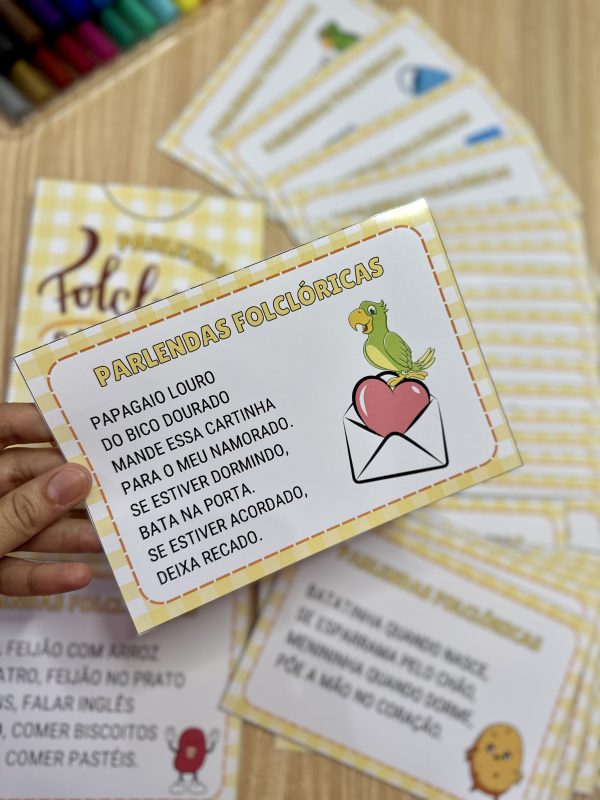 PARLENDAS FOLCLÓRICAS
PARLENDAS FOLCLÓRICAS
PARLENDAS FOLCLÓRICAS
PARLENDAS FOLCLÓRICAS
PARLENDA
Folcl
PARLENDAS FOLCLÓRICAS
PAPAGAIO LOURO
DO BICO DOURADO
MANDE ESSA CARTINHA
PARA O MEU NAMORADO.
SE ESTIVER DORMINDO,
BATA NA PORTA.
SE ESTIVER ACORDADO,
DEIXA RECADO.
PARLENDAS FOLCLÓRICAS
BATATINHA QUANDO NASCE,
SE ESPARRAMA PELO CHÃO,
MENININHA QUANDO DORME,
PÕE A MÃO NO CORAÇÃO.
PARLENDAS FOLCLÓRICAS
, FEIJÃO COM ARROZ
ATRO, FEIJÃO NO PRATO
, FALAR INGLÊS
O, COMER BISCOITOS
COMER PASTÉIS.